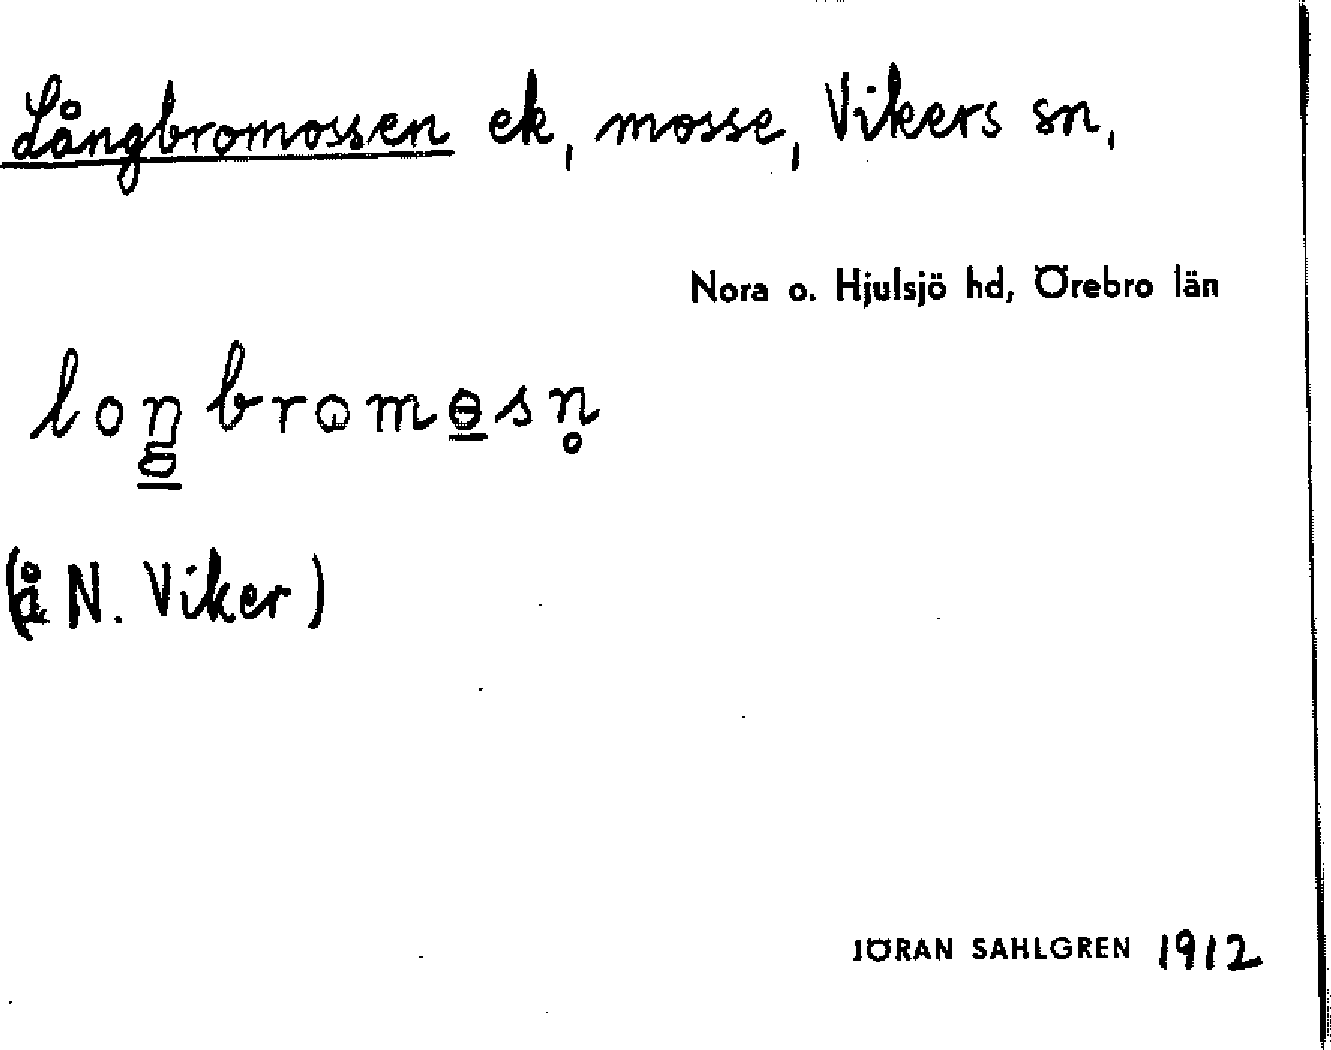 Långbromossen ek, mosse, Vikers sn,
Nora o. Hjulsjö hd, Örebro län
loŋbromɵsn̥
(å N. Viker)
JÖRAN SAHLGREN 1912